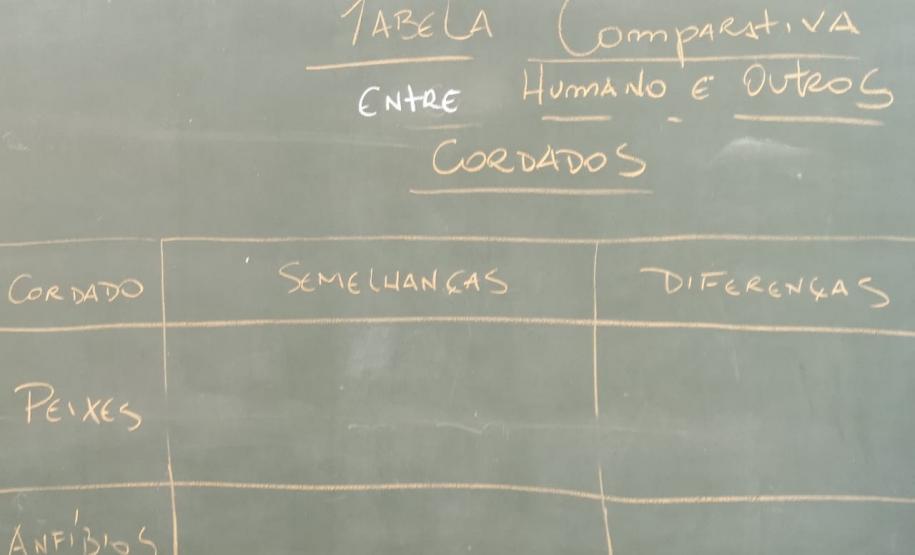 TABELA COMPARATIVA
ENTRE HUMANO E OUTROS
CORDADOS
CORDADO SEMELHANÇAS DIFERENÇAS
PEIXES
ANFÍBIOS